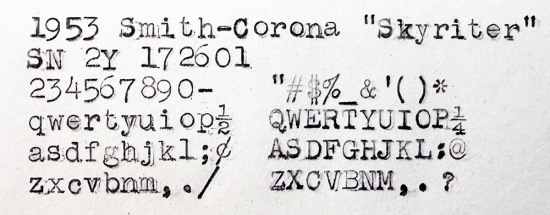 1953 Smith-Corona "Skyriter"
SN 2Y 172601
234567890- "#$%_&'()*
qwertyuiop½ QWERTYUIOP¼
asdfghjkl;¢ ASDFGHJKL:@
zxcvbnm,./ ZXCVBNM,.?